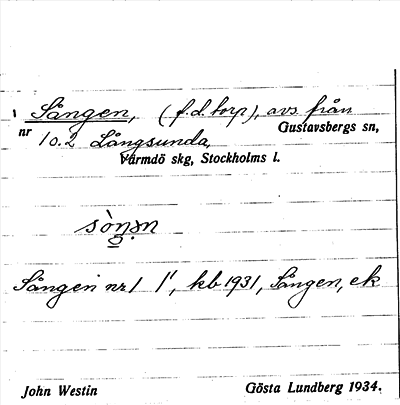 Sången, (f.d. torp), avs. från
nr 1 o. 2 Långsunda, Gustavsbergs sn,
Värmdö skg, Stockholms l.
Sången nr 1 1', kb 1931, Sången, ek
John Westin Gösta Lundberg 1934.